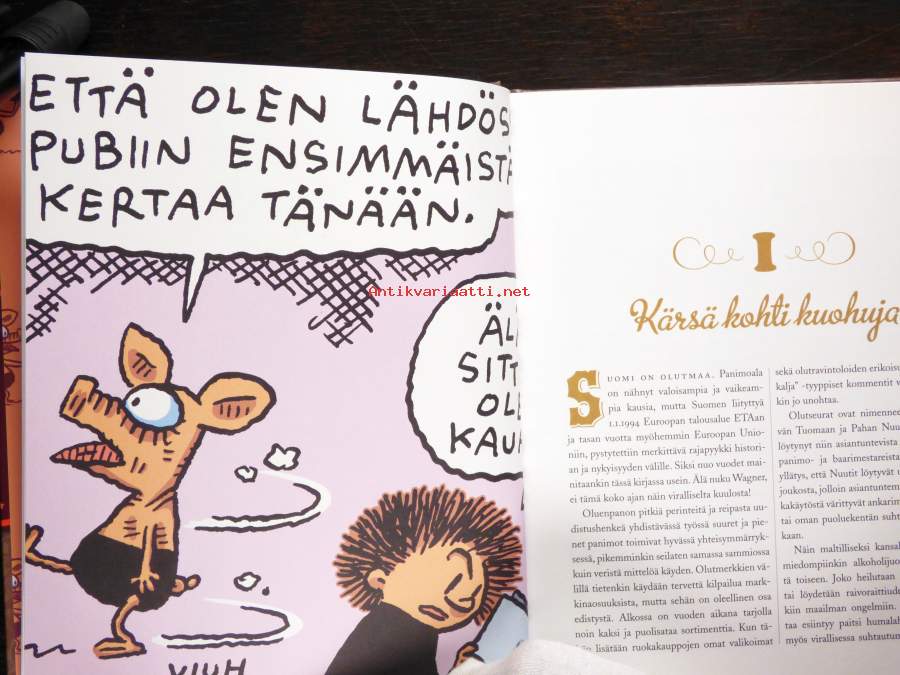 ETTÄ OLEN LÄHDÖS
PUBIIN ENSIMMÄISTÄ
KERTAA TÄNÄÄN.
Antikvariaatti.net
ÄL
SITT
OLE
KAUH
VIUH
I
Kärsä kohti kuohuja
SUOMI ON OLUTMAA. Panimoala
on nähnyt valoisampia ja vaikeam-
pia kausia, mutta Suomen liityttyä
1.1.1994 Euroopan talousalue ETAan
ja tasan vuotta myöhemmin Euroopan Unio-
niin, pystytettiin merkittävä rajapyykki histori-
an ja nykyisyyden välille. Siksi nuo vuodet mai-
nitaankin tässä kirjassa usein. Älä nuku Wagner,
ei tämä koko ajan näin viralliselta kuulosta!
Oluenpanon pitkiä perinteitä ja reipasta uu-
distushenkeä yhdistävässä työssä suuret ja pie-
net panimot toimivat hyvässä yhteisymmärryk-
sessä, pikemminkin seilaten samassa sammiossa
kuin veristä mittelöä käyden. Olutmerkkien vä-
lillä tietenkin käydään tervettä kilpailua mark-
kinaosuuksista, mutta sehän on oleellinen osa
edistystä. Alkossa on vuoden aikana tarjolla
noin kaksi ja puolisataa sortimenttia. Kun tä-
lisätään ruokakauppojen omat valikoimat
sekä olutravintoloiden erikoisu
kalja" -tyyppiset kommentit v
kin jo unohtaa.
Olutseurat ovat nimennee
vän Tuomaan ja Pahan Nuu
löytynyt niin asiantuntevista
panimo- ja baarimestareista
yllätys, että Nuutit löytyvät u
joukosta, jolloin asiantuntem
kakäytöstä värittyvät ankarim
tai oman puoluekentän suht
kaan.
Näin maltilliseksi kansal
miedompiinkin alkoholijuo
tä toiseen. Joko heilutaan
tai löydetään raivoraittiud
kiin maailman ongelmiin.
taa esiintyy paitsi humalah
myös virallisessa suhtautun